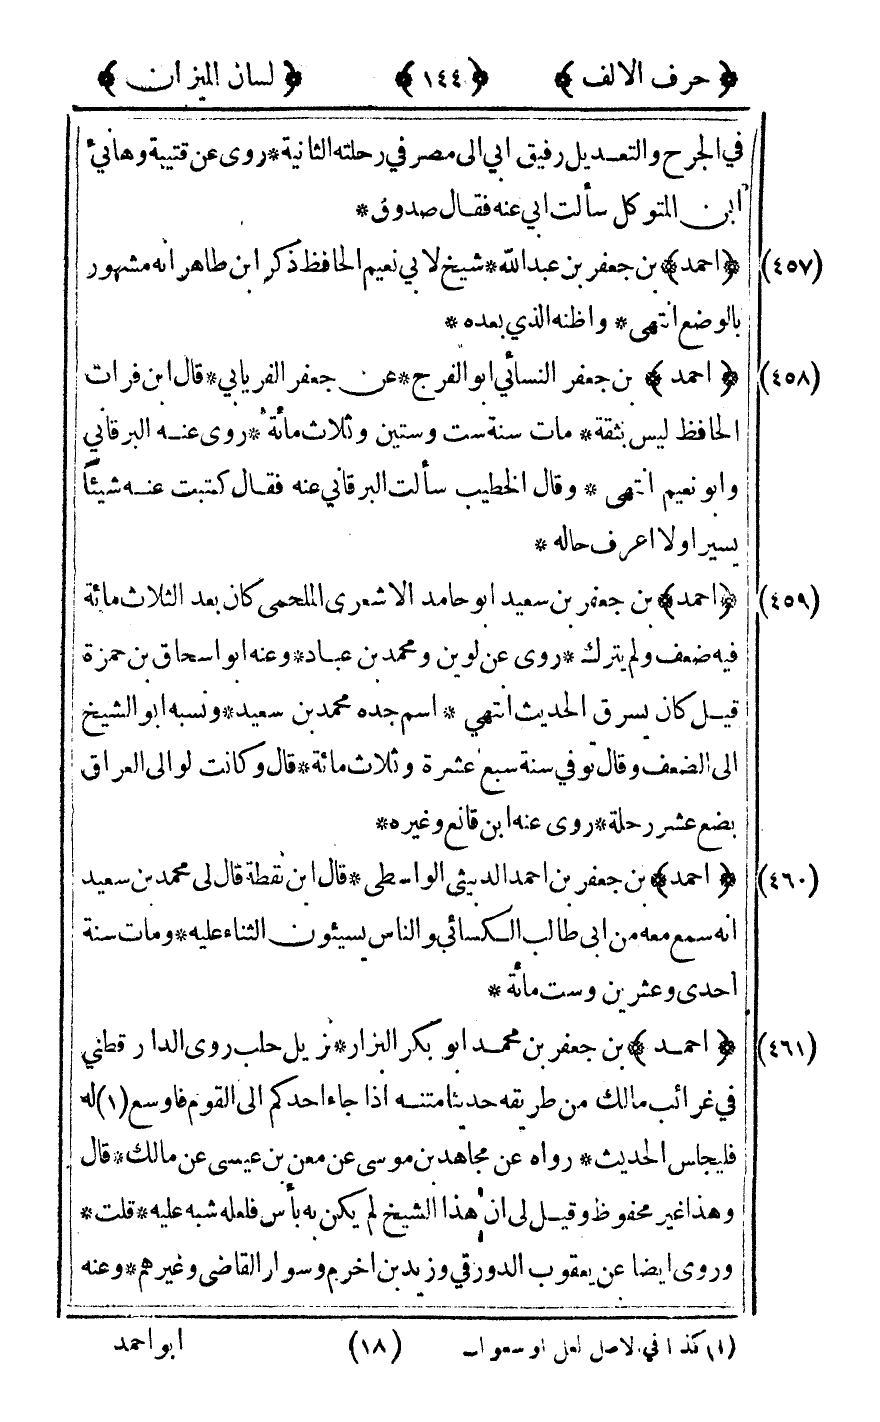 ﴿ حرف الالف ﴾ ﴿ ١٤٤ ﴾ ﴿ لسان الميزان ﴾
في الجرح والتعديل رفيق ابي الى مصر في رحلته الثانية * روى عن قتيبة وهانئ
ابن المتوكل سألت ابي عنه فقال صدوق *
(٤٥٧) ﴿ احمد ﴾ بن جعفر بن عبد الله * شيخ لابي نعيم الحافظ ذكر ابن طاهر انه مشهور
بالوضع انتهى * واظنه الذي بعده *
(٤٥٨) ﴿ احمد ﴾ بن جعفر النسائي ابو الفرج * عن جعفر الفريابي * قال ابن فرات
الحافظ ليس بثقة * مات سنة ست وستين وثلاث مائة * روى عنه البرقاني
وابو نعيم انتهى * وقال الخطيب سألت البرقاني عنه فقال كتبت عنه شيئاً
يسيرا ولا اعرف حاله *
(٤٥٩) ﴿ احمد ﴾ بن جعفر بن سعيد ابو حامد الاشعرى الملحمى كان بعد الثلاث مائة
فيه ضعف ولم يترك * روى عن لوين ومحمد بن عباد * وعنه ابو اسحاق بن حمزة
قيل كان يسرق الحديث انتهي * اسم جده محمد بن سعيد * ونسبه ابو الشيخ
الى الضعف وقال توفي سنة سبع عشرة وثلاث مائة * قال وكانت لوالى العراق
بضع عشر رحلة * روى عنه ابن قانع وغيره *
(٤٦٠) ﴿ احمد ﴾ بن جعفر بن احمد الدبيثى الواسطى * قال ابن نقطة قال لى محمد بن سعيد
انه سمع معه من ابى طالب الكسائي والناس يسيئون الثناء عليه * ومات سنة
احدى وعشرين وست مائة *
(٤٦١) ﴿ احمد ﴾ بن جعفر بن محمد ابو بكر البزار * نزيل حلب روى الدار قطني
في غرائب مالك من طريقه حديثا متنه اذا جاء احدكم الى القوم فاوسع (١) له
فليجلس الحديث * رواه عن مجاهد بن موسى عن معن بن عيسى عن مالك * قال
وهذا غير محفوظ وقيل لى ان هذا الشيخ لم يكن به بأس فلعله شبه عليه * قلت *
وروى ايضا عن يعقوب الدورقي وزيد بن اخرم وسوار القاضى وغيرهم * وعنه
(١) كذا في الاصل لعل اوسعوا (١٨) ابو احمد